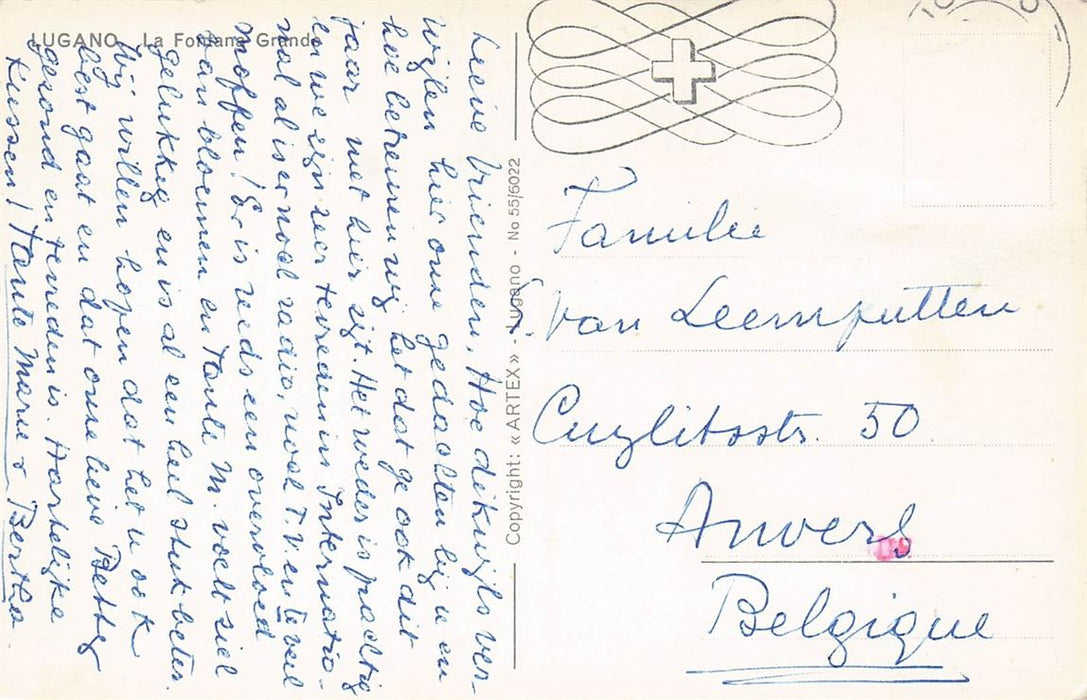 LUGANO - La Fontana Grande
Lieve Vrienden, Hoe dikwijls ver-
wijlen hier onze gedachten bij u en
hoe betreuren wij het dat ge ook dit
jaar niet hier zijt. Het weder is prachtig
en we zijn zeer tevreden in s' Internatio-
nal al is er noch radio, noch T.V. en te veel
moffen! Er is reeds een overvloed
aan bloemen en Tante M. voelt ziel
gelukkig en is al een heel stuk beter.
Wij willen hopen dat het u ook
best gaat en dat onze lieve Betty
gezond en tevreden is. Hartelijke
kussen! Tante Maria & Bertha
Copyright: «ARTEX» - Lugano - No 55/6022
Familie
J. Van Leemputten
Cuylitsstr. 50
Anvers
Belgique